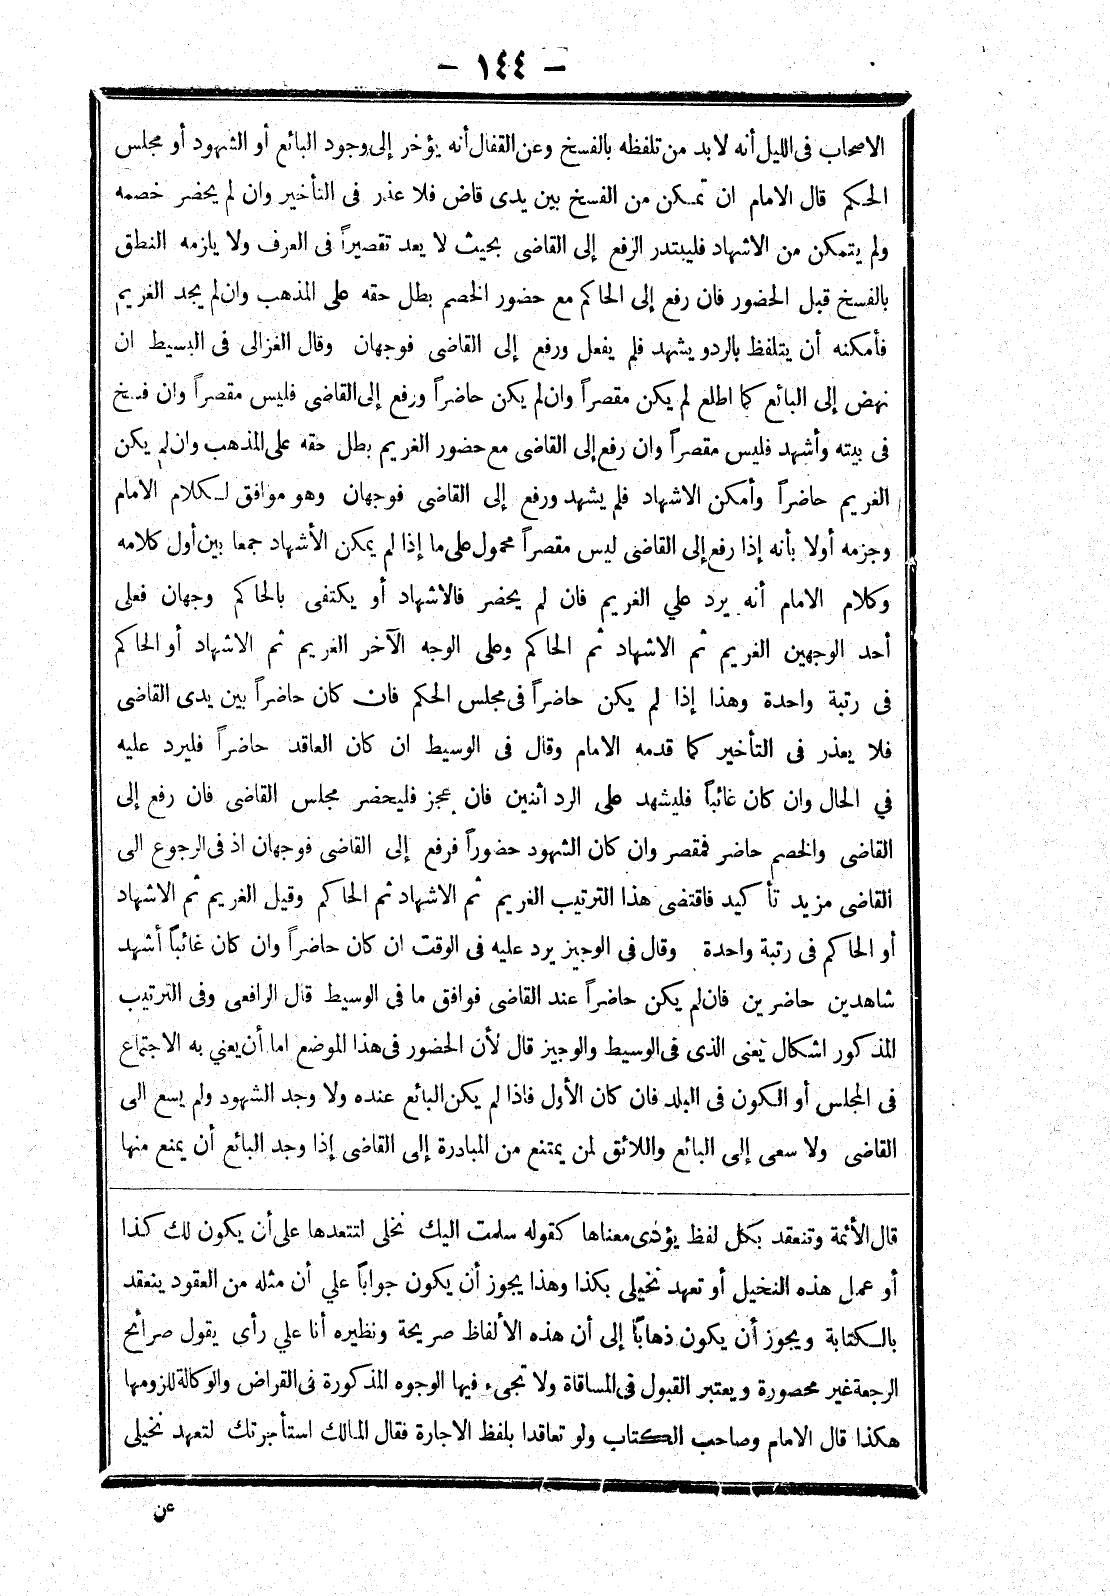 — ١٤٤ —
الاصحاب فى الليل أنه لا بد من تلفظه بالفسخ وعن القفال أنه يؤخر إلى وجود البائع أو الشهود أو مجلس
الحكم قال الامام ان تمكن من الفسخ بين يدى قاض فلا عذر فى التأخير وان لم يحضر خصمه
ولم يتمكن من الاشهاد فليبتدر الرفع إلى القاضى بحيث لا يعد تقصيراً فى العرف ولا يلزمه النطق
بالفسخ قبل الحضور فان رفع إلى الحاكم مع حضور الخصم بطل حقه على المذهب وان لم يجد الغريم
فأمكنه أن يتلفظ بالرد ويشهد فلم يفعل ورفع إلى القاضى فوجهان وقال الغزالى فى البسيط ان
نهض إلى البائع كما اطلع لم يكن مقصراً وان لم يكن حاضراً ورفع إلى القاضى فليس مقصراً وان فسخ
فى بيته وأشهد فليس مقصراً وان رفع إلى القاضى مع حضور الغريم بطل حقه على المذهب وان لم يكن
الغريم حاضراً وأمكن الاشهاد فلم يشهد ورفع إلى القاضى فوجهان وهو موافق لكلام الامام
وجزمه أولا بأنه إذا رفع إلى القاضى ليس مقصراً محمول على ما إذا لم يمكن الأشهاد جمعا بين أول كلامه
وكلام الامام أنه يرد علي الغريم فان لم يحضر فالاشهاد أو يكتفى بالحاكم وجهان فعلى
أحد الوجهين الغريم ثم الاشهاد ثم الحاكم وعلى الوجه الآخر الغريم ثم الاشهاد أو الحاكم
فى رتبة واحدة وهذا إذا لم يكن حاضراً فى مجلس الحكم فان كان حاضراً بين يدى القاضى
فلا يعذر فى التأخير كما قدمه الامام وقال فى الوسيط ان كان العاقد حاضراً فليرد عليه
في الحال وان كان غائباً فليشهد على الرد اثنين فان عجز فليحضر مجلس القاضى فان رفع إلى
القاضى والخصم حاضر فمقصر وان كان الشهود حضوراً فرفع إلى القاضى فوجهان اذ فى الرجوع الى
القاضى مزيد تأكيد فاقتضى هذا الترتيب الغريم ثم الاشهاد ثم الحاكم وقيل الغريم ثم الاشهاد
أو الحاكم فى رتبة واحدة وقال فى الوجيز يرد عليه فى الوقت ان كان حاضراً وان كان غائباً أشهد
شاهدين حاضرين فان لم يكن حاضراً عند القاضى فوافق ما فى الوسيط قال الرافعى وفى الترتيب
المذكور اشكال يعنى الذى فى الوسيط والوجيز قال لأن الحضور فى هذا الموضع اما أن يعني به الاجتماع
فى المجلس أو الكون فى البلد فان كان الأول فاذا لم يكن البائع عنده ولا وجد الشهود ولم يسع الى
القاضى ولا سعى إلى البائع واللائق لمن يمتنع من المبادرة إلى القاضى إذا وجد البائع أن يمنع منها
قال الأئمة وتنعقد بكل لفظ يؤدى معناها كقوله سلمت اليك نخلى لتتعدها على أن يكون لك كذا
أو عمل هذه النخيل أو تعهد نخيلى بكذا وهذا يجوز أن يكون جواباً علي أن مثله من العقود ينعقد
بالكتابة ويجوز أن يكون ذهابًا إلى أن هذه الألفاظ صريحة ونظيره أنا علي رأى يقول صرائح
الرجعة غير محصورة ويعتبر القبول فى المساقاة ولا تجىء فيها الوجوه المذكورة فى القراض والوكالة للزومها
هكذا قال الامام وصاحب الكتاب ولو تعاقدا بلفظ الاجارة فقال المالك استأجرتك لتعهد نخيلى
عن